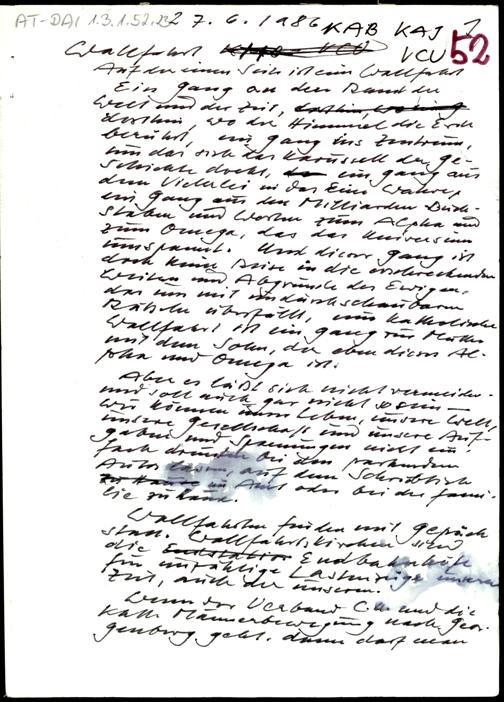 AT-DAI 1.3.1.52.232 7.6.1986 KAB KAJ 1
Wallfahrt VCU 52
Auf der einen Seite ist ein Wallfahrt
Ein Gang an den Rand der
Welt und der Zeit,
dorthin wo die Himmel die Erde
berührt, ein Gang ins Zentrum,
um das sich das Karussell der Ge-
schichte dreht, ein Gang aus
dem Vielerlei in das Eine Wahre,
ein Gang aus den Milliarden Buch-
staben und Worten zum Alpha und
zum Omega, das das Universum
umspannt. Und dieser Gang ist
doch keine Reise in die erschreckenden
Weiten und Abgründe des Ewigen,
das uns mit undurchschaubaren
Rätseln überfällt, eine katholische
Wallfahrt ist ein Gang zur Mutter
mit dem Sohn, der eben dieses Al-
pha und Omega ist.
Aber es läßt sich nicht vermeiden -
und soll auch gar nicht sein -
wir können unser Leben, unsere Welt,
unsere Gesellschaft und unsere Auf-
gaben und Spannungen nicht ein-
fach draußen bei den parkenden
Autos lassen, auf dem Schreibtisch
im Amt oder bei der Fami-
lie zu Hause.
Wallfahrten finden mit Gepäck
statt. Wallfahrtskirchen sind
die Endbahnhöfe
für unzählige Lastenzüge unserer
Zeit, auch der unseren.
Wenn der Verband C.U. und die
Kath. Männerbewegung nach Geor-
genberg geht, dann darf man